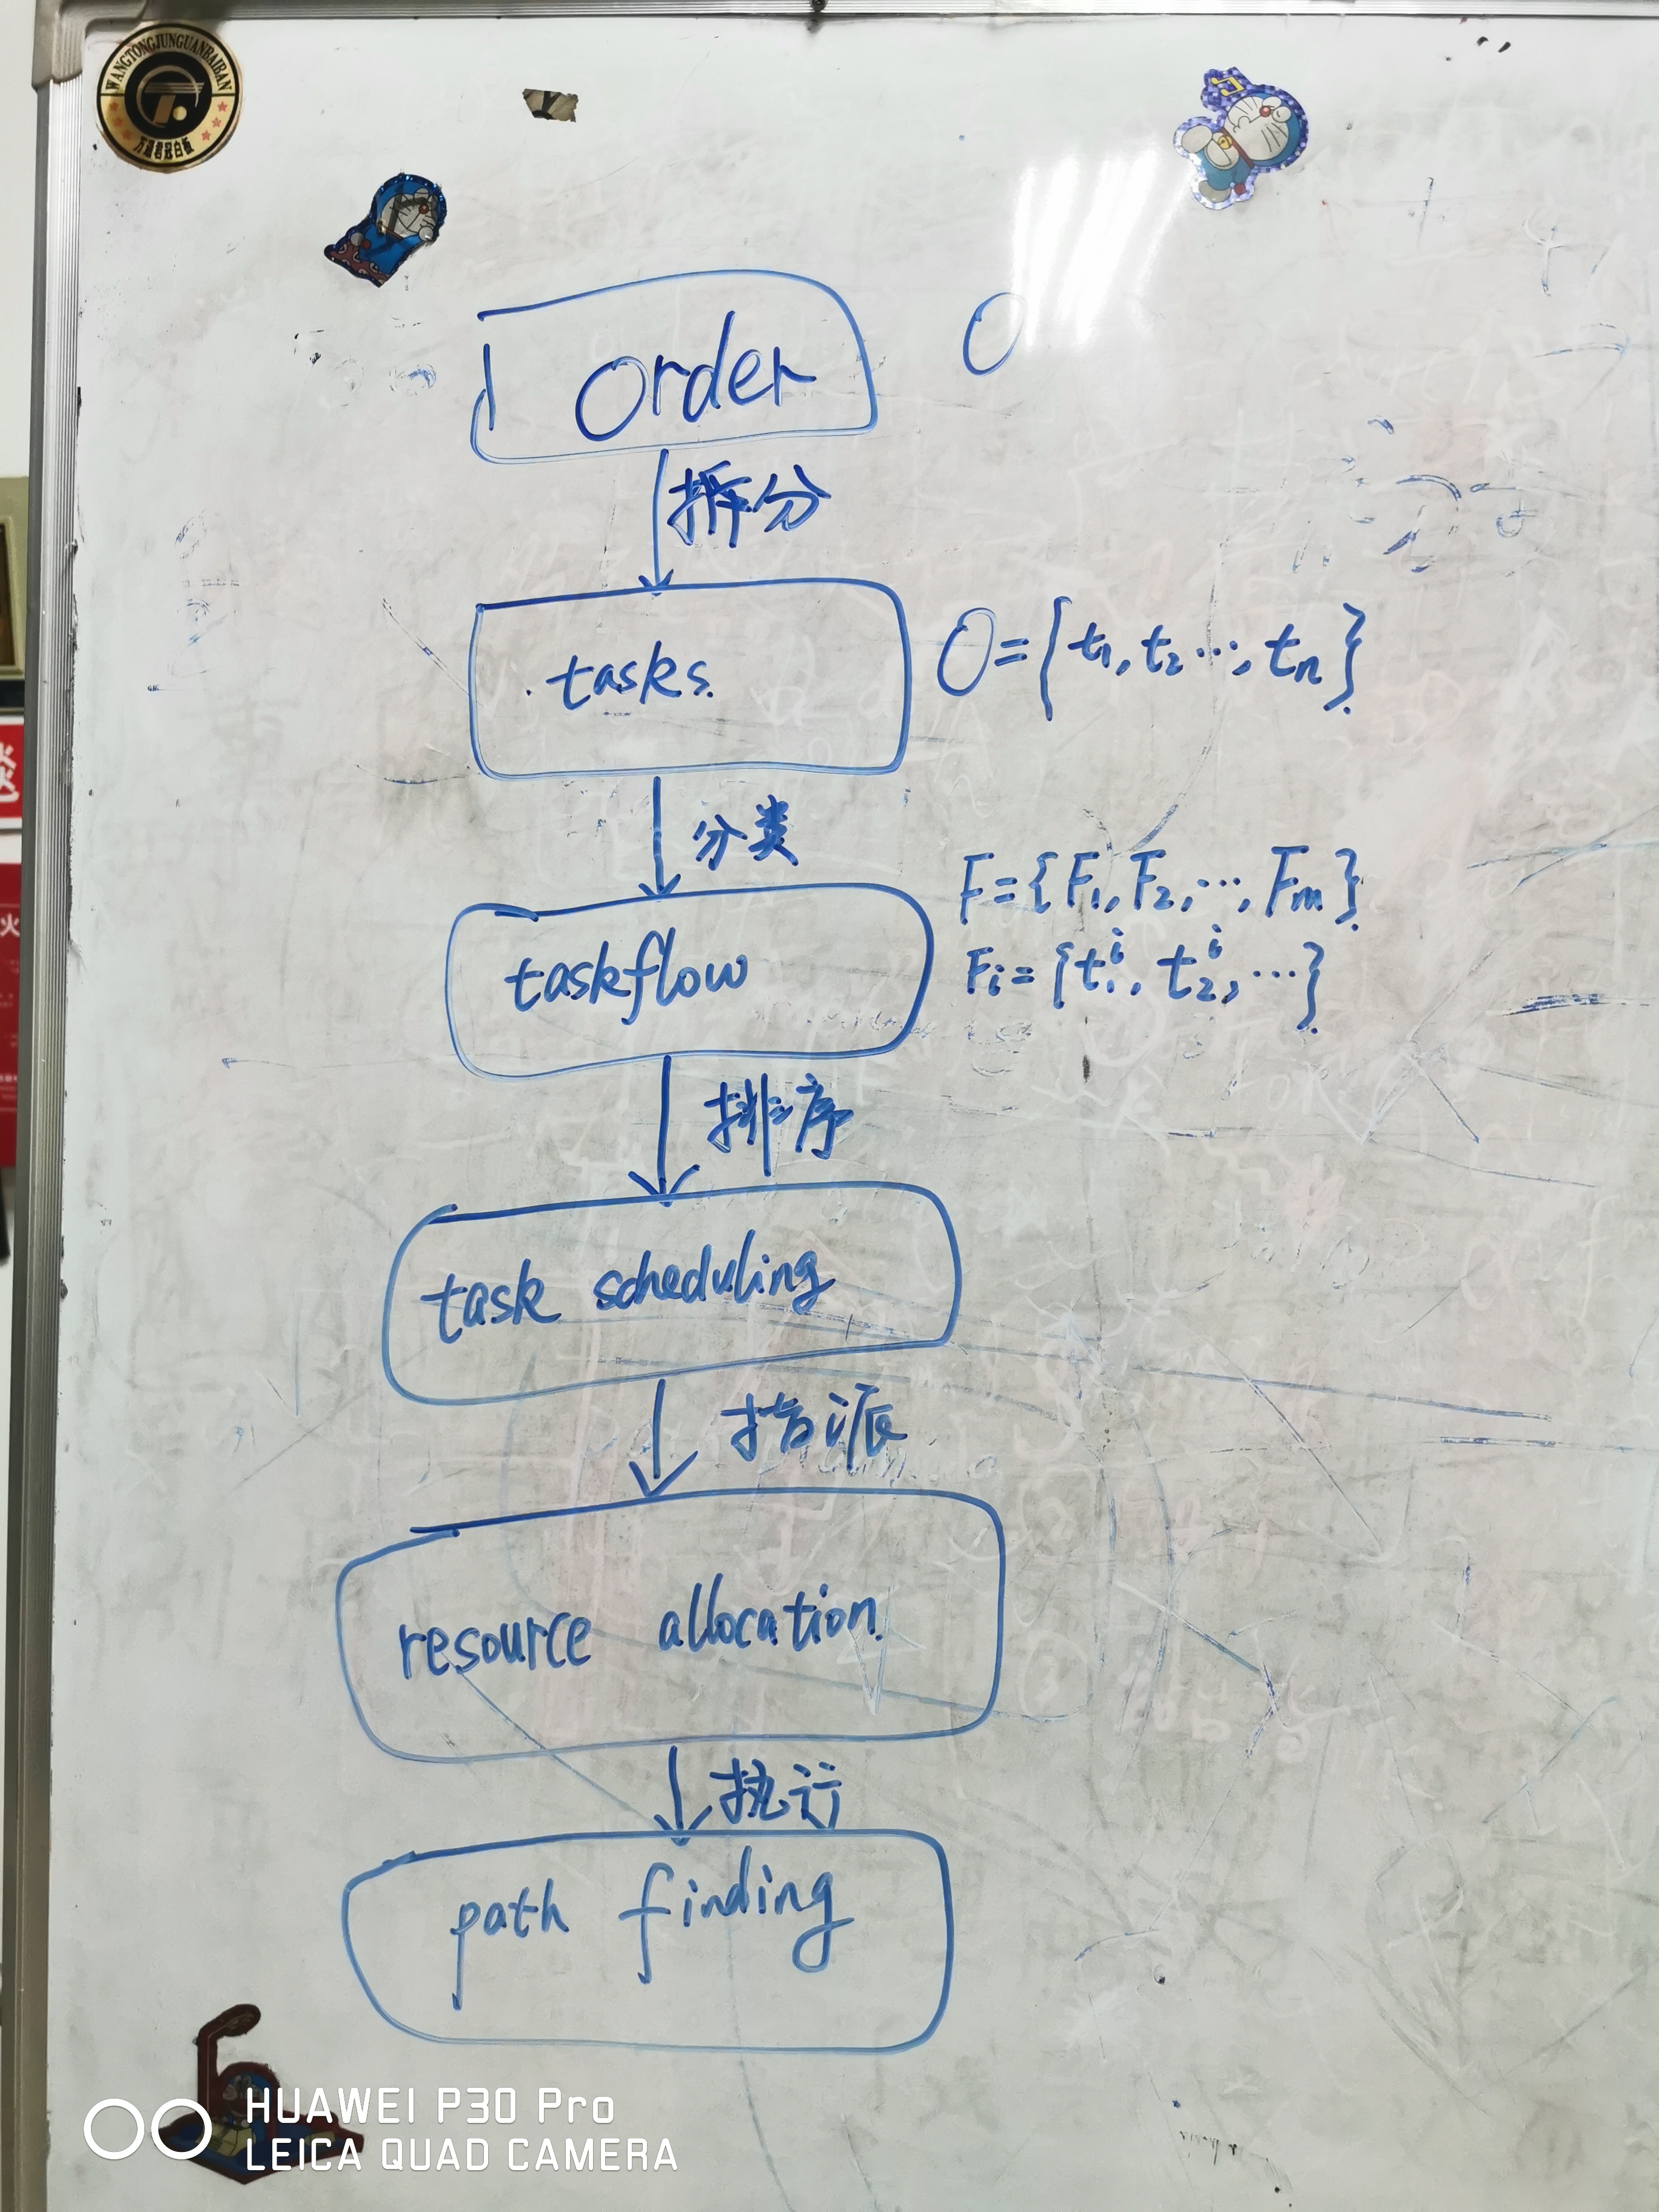 WANGTONGJUNGUANBAIBAN
Order
O
拆分
tasks
O={t₁, t₂ ..., tn}
分类
taskflow
F={F₁, F₂, ..., Fm}
Fi={t₁ⁱ, t₂ⁱ, ...}
排序
task scheduling
指派
resource allocation
执行
path finding
HUAWEI P30 Pro
LEICA QUAD CAMERA